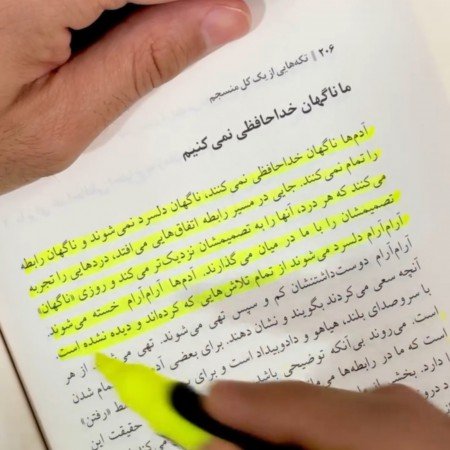 ۲۰۶ || تکه‌هایی از یک کل منسجم
ما ناگهان خداحافظی نمی کنیم
آدم‌ها ناگهان خداحافظی نمی‌کنند، ناگهان دلسرد نمی‌شوند و ناگهان رابطه
را تمام نمی کنند. جایی در مسیر رابطه اتفاق‌هایی می‌افتد، دردهایی را تجربه
می‌کنند که هر درد، آنها را به تصمیمشان نزدیک‌تر می‌کند و روزی «ناگهان»
تصمیمشان را با ما در میان می‌گذارند. آدم‌ها آرام‌آرام خسته می‌شوند.
آرام‌آرام دلسرد می‌شوند از تمام تلاش‌هایی که کرده‌اند و دیده نشده است.
آرام‌آرام دوست‌داشتنشان کم و سپس تهی می‌شوند. تهی می‌شوند از هر
آنچه سعی می‌کردند بگویند و نشان دهند. برای بعضی آدم‌ها تمام شدن
با سروصدای بلند، هیاهو و دادوبیداد است و برای فقط «رفتن»
است. می‌روند بی‌آنکه توضیحی حقیقت این
است که ما در رابطه‌ها می‌مانیم
دارد. بخشی از